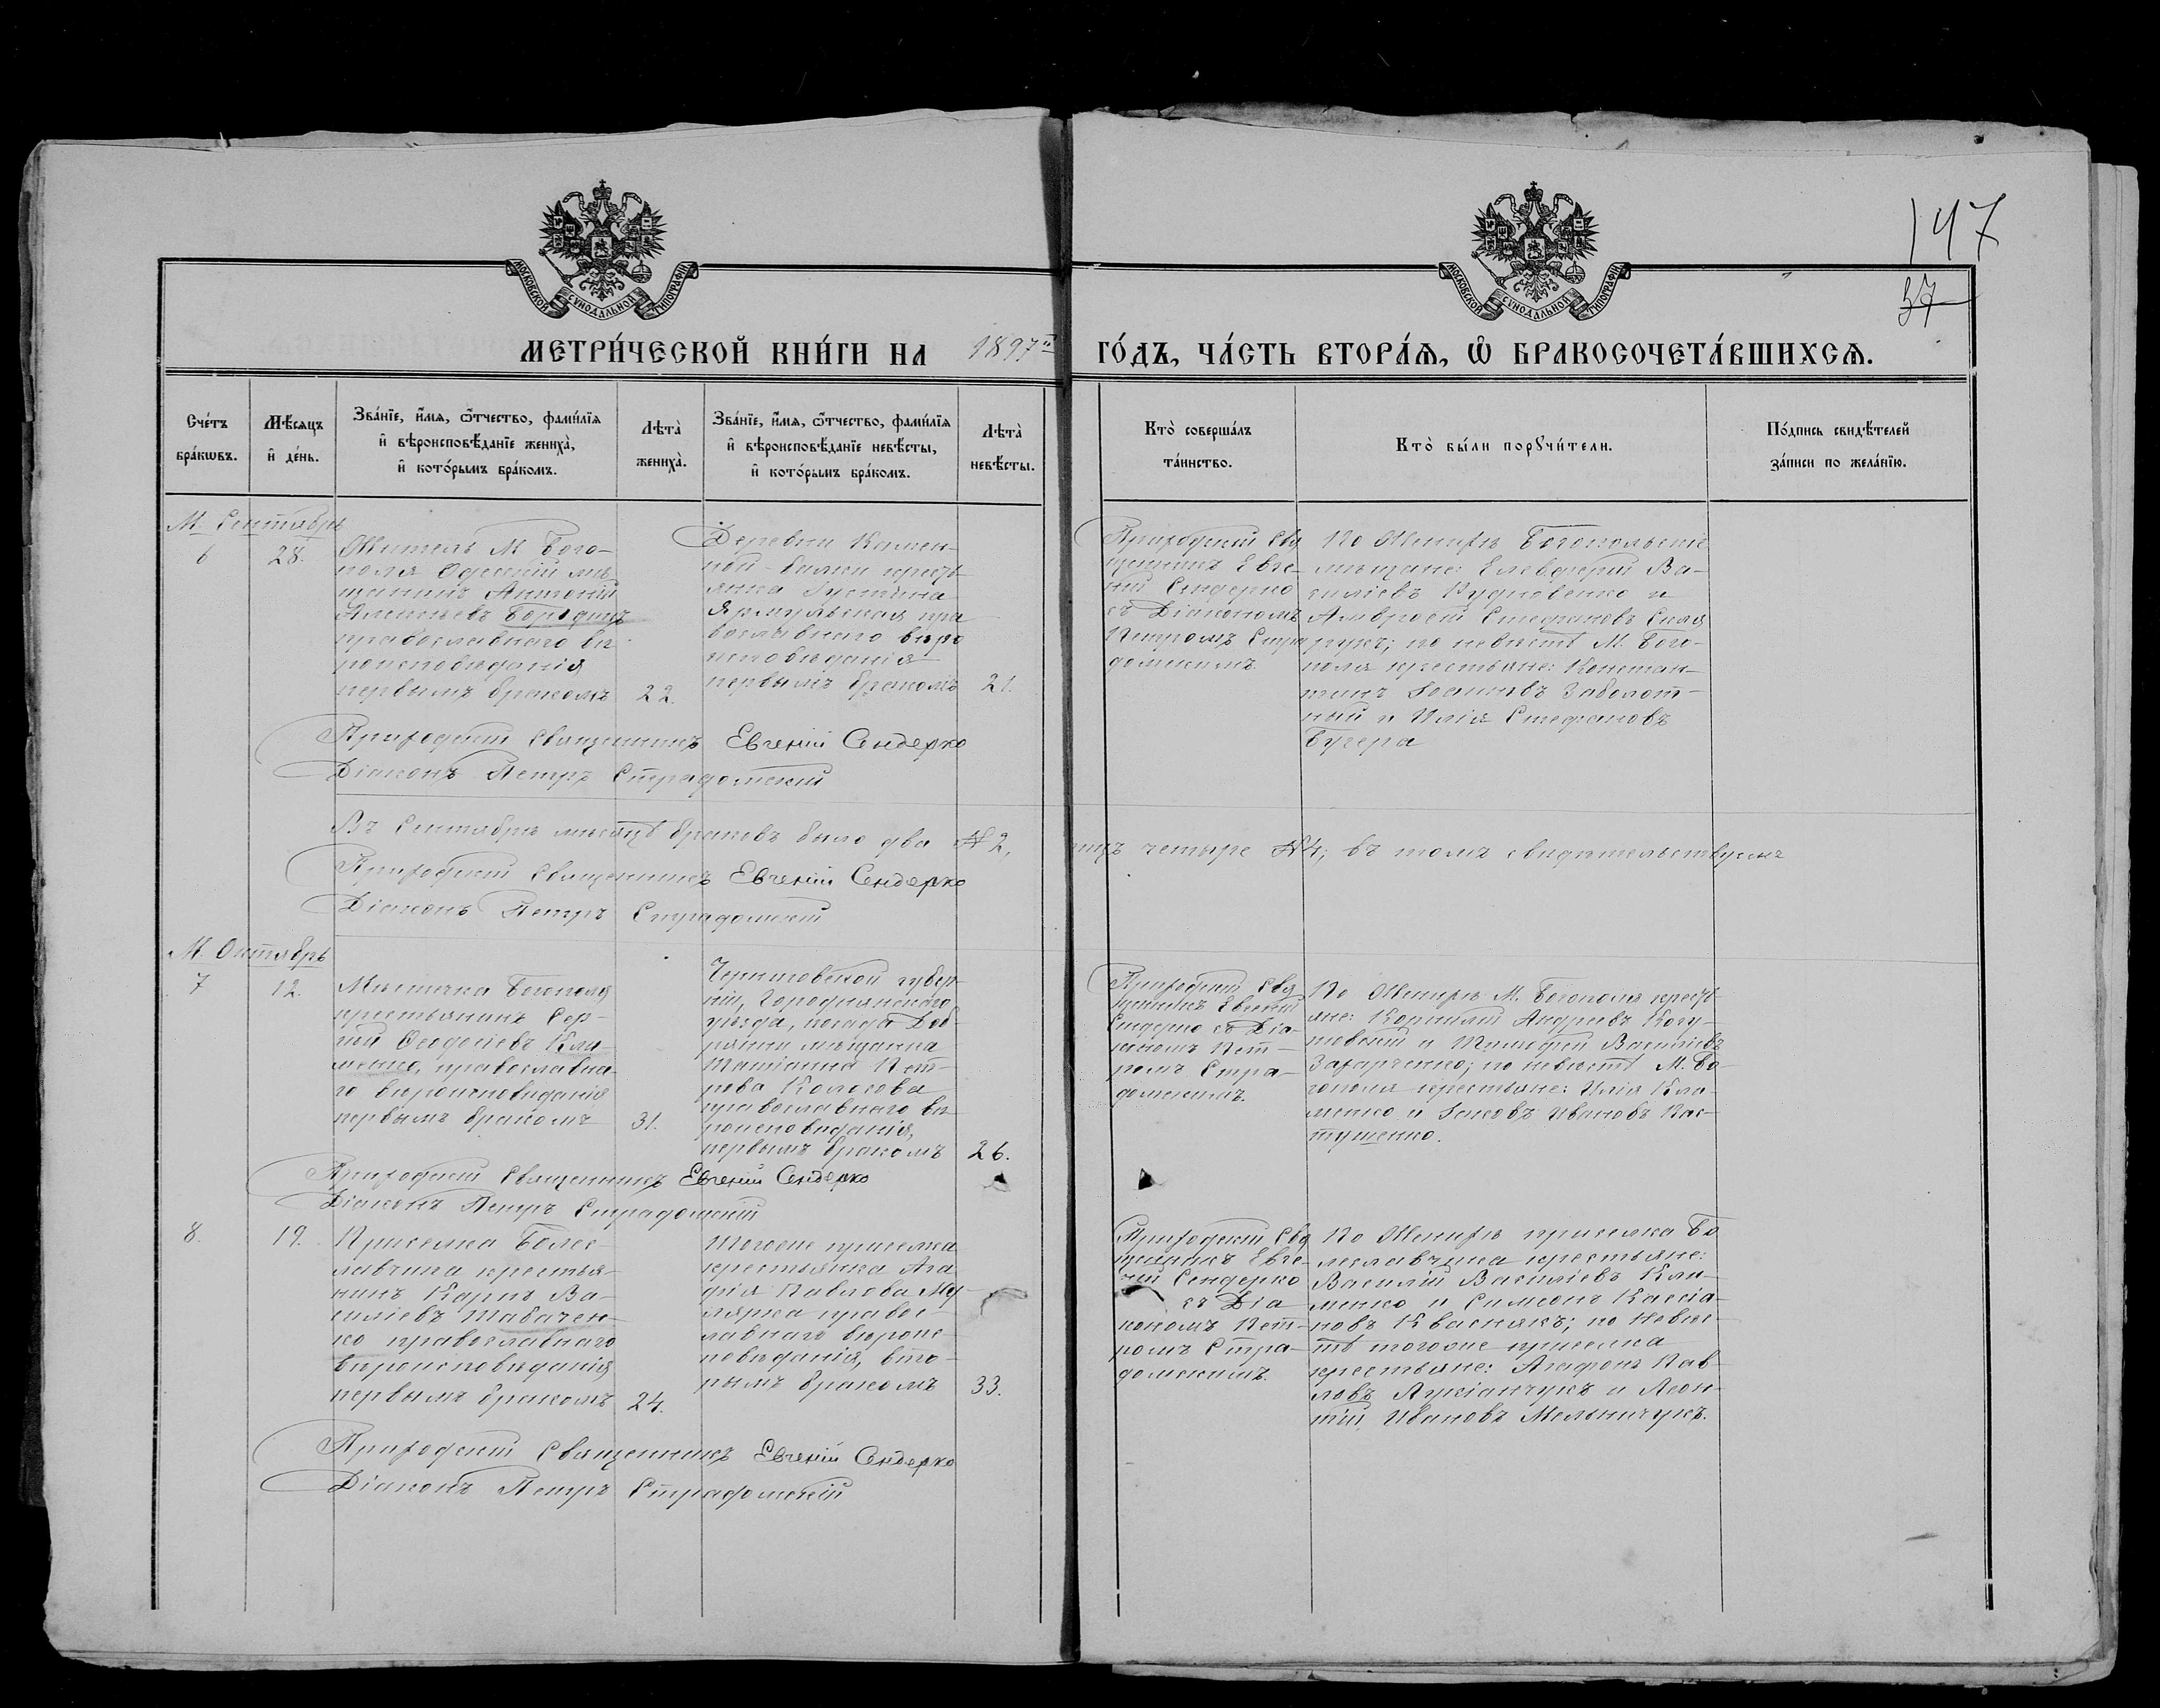 147
37
МОСКОВСКОЙ СУНОДАЛЬНОЙ ТИПОГРАФІИ
МОСКОВСКОЙ СУНОДАЛЬНОЙ ТИПОГРАФІИ
МЕТРИ́ЧЕСКОЙ КНИ́ГИ НА 1897й ГО́ДЪ, ЧА́СТЬ ВТОРА́Я, Ѡ БРАКОСОЧЕТА́ВШИХСЯ.
Сче́тъ
бра́кѡвъ.
Мѣ́сяцъ
и де́нь.
Зва́нїе, и́мя, ѻ́тчество, фами́лїя
и вѣроисповѣ́данїе жениха̀,
и кото́рымъ бра́комъ.
Лѣта̀
жениха̀.
Зва́нїе, и́мя, ѻ́тчество, фами́лїя
и вѣроисповѣ́данїе невѣ́сты,
и кото́рымъ бра́комъ.
Лѣта̀
невѣ́сты.
Кто̀ соверша́лъ
та́инство.
Кто̀ бы́ли порꙋчи́тели.
По́дпись свидѣ́телей
за́писи по жела́нїю.
М. Сентябрь
6
28.
Житель М. Бого-
поля Одесскій мѣ-
щанинъ Антоній
Алексѣевъ
православнаго вѣ
роисповѣданія
первымъ бракомъ
22.
Деревни Камен-
ной-балки кресть
янка Іустина
пра
вославнаго вѣро
исповѣданія
первымъ бракомъ
21.
Приходскій Свя
щенникъ Евге-
ній Сендерко
съ Діакономъ
Петромъ Стра
домскимъ.
По Женихѣ Богопольскіе
мѣщане: Елевферій Ва-
силіевъ Рудковенко и
Амвросій Стефановъ Скля
рукъ; по невѣстѣ М. Бого-
поля крестьяне: Констан-
тинъ Іоанновъ Заболот-
ный и Илія Стефановъ
Бугера
Приходскій Священникъ Евгеній Сендерко
Діаконъ Петръ Страдомскій
Въ Сентябрѣ мѣсяцѣ браковъ было два № 2, четыре № 4; въ томъ свидѣтельствуемъ
Приходскій Священникъ Евгеній Сендерко
Діаконъ Петръ Страдомскій
М. Октябрь
7
12.
Мѣстечка Богополя
крестьянинъ Сер-
гій Ѳеодосіевъ Кли-
менко, православна-
го вѣроисповѣданія
первымъ бракомъ
31.
Черниговской губер-
ніи, Городнянскаго
уѣзда, посада Доб-
рянки мѣщанка
Татіанна Пет-
рова Колосова
православнаго вѣ-
роисповѣданія,
первымъ бракомъ
26.
Приходскій Свя
щенникъ Евгеній
Сендерко съ Діа-
кономъ Пет-
ромъ Стра-
домскимъ.
По Женихѣ М. Богополя кресть-
яне: Корнилій Андреевъ Когу-
товскій и Тимофей Василіевъ
Захарченко; по невѣстѣ М. Бо-
гополя крестьяне: Илія Кли-
менко и Іаковъ Ивановъ Пас-
тушенко.
Приходскій Священникъ Евгеній Сендерко
Діаконъ Петръ Страдомскій
8.
19.
Приселка Болес-
лавчика крестья-
нинъ Карпъ Ва-
силіевъ Табачен-
ко православнаго
вѣроисповѣданія
первымъ бракомъ
24.
Тогоже приселка
крестьянка Ага
фія Павлова Му-
лярка правос-
лавнаго вѣроис
повѣданія, вто-
рымъ бракомъ
33.
Приходскій Свя
щенникъ Евге-
ній Сендерко
съ Діа
кономъ Пет-
ромъ Стра-
домскимъ.
По Женихѣ приселка Бо
леславчика крестьяне:
Василій Василіевъ Кли-
менко и Симеонъ Кассіа-
новъ Кваснякъ; по Невѣс-
тѣ тогоже приселка
крестьяне: Агафонъ Пав-
ловъ Лукіанчукъ и Леон-
тій Ивановъ Мельничукъ.
Приходскій Священникъ Евгеній Сендерко
Діаконъ Петръ Страдомскій